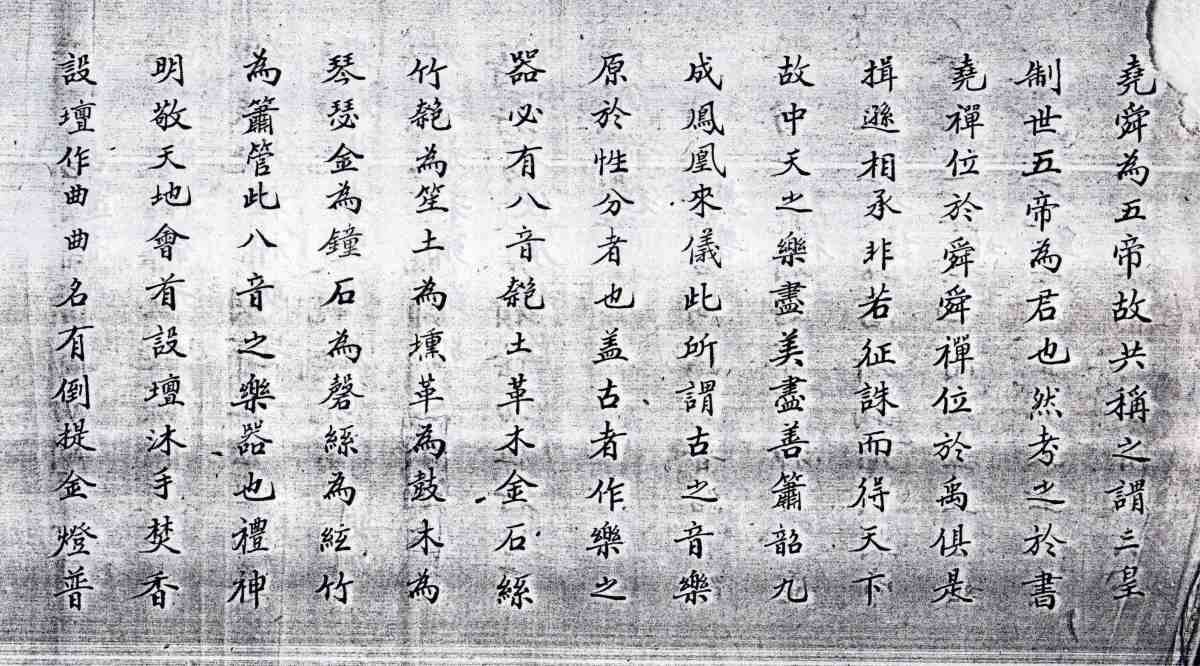 堯舜為五帝故共稱之謂三皇
制世五帝為君也然考之於書
堯禪位於舜舜禪位於禹俱是
揖遜相承非若征誅而得天下
故中天之樂盡美盡善簫韶九
成鳳凰來儀此所謂古之音樂
原於性分者也盖古者作樂之
器必有八音匏土革木金石絲
竹匏為笙土為壎革為鼓木為
琴瑟金為鐘石為磬絲為絃竹
為簫管此八音之樂器也禮神
明敬天地會首設壇沐手焚香
設壇作曲曲名有倒提金燈普